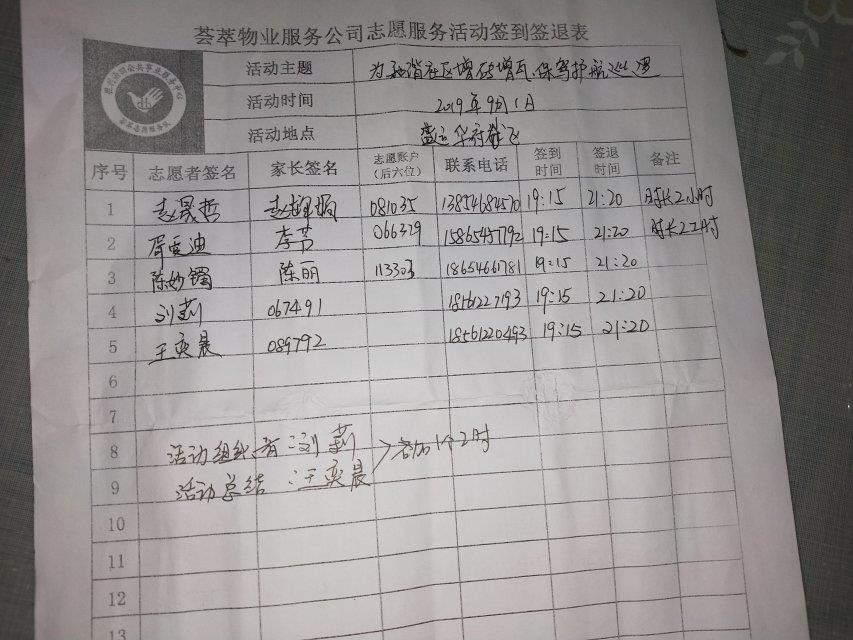 荟萃物业服务公司志愿服务活动签到签退表
活动主题 为和谐社区增砖增瓦,保驾护航巡逻
活动时间 2019年9月1日
活动地点
序号 志愿者签名 家长签名 志愿账户(后六位) 联系电话 签到时间 签退时间 备注
1 赵晟哲 081035 13854684570 19:15 21:20 时长2小时
2 李芳 066379 15865457792 19:15 21:20 时长2小时
3 陈妙镯 陈丽 113303 18654661781 19:15 21:20
4 刘莉 067491 18561227193 19:15 21:20
5 王奕晨 089792 18561220493 19:15 21:20
6
7
8 活动组织者:刘莉
9 活动总结:王奕晨 >各加1个小时
10
11
12
13